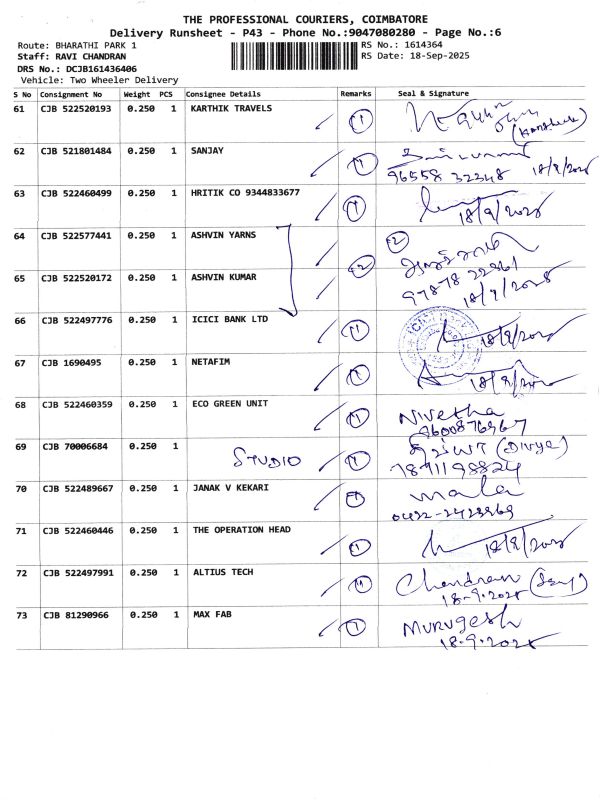 THE PROFESSIONAL COURIERS, COIMBATORE
Delivery Runsheet - P43 - Phone No.:9047080280 - Page No.:6
Route: BHARATHI PARK 1
RS No.: 1614364
Staff: RAVI CHANDRAN
RS Date: 18-Sep-2025
DRS No.: DCJB161436406
Vehicle: Two Wheeler Delivery
S No Consignment No Weight PCS Consignee Details Remarks Seal & Signature
61 CJB 522520193 0.250 1 KARTHIK TRAVELS 1
62 CJB 521801484 0.250 1 SANJAY 1
96558 32248 18/9/2025
63 CJB 522460499 0.250 1 HRITIK CO 9344833677 1
18/9/2025
64 CJB 522577441 0.250 1 ASHVIN YARNS 2
2
65 CJB 522520172 0.250 1 ASHVIN KUMAR
18/9/2025
66 CJB 522497776 0.250 1 ICICI BANK LTD 1 18/9/2025
67 CJB 1690495 0.250 1 NETAFIM 1 18/9/2025
68 CJB 522460359 0.250 1 ECO GREEN UNIT 1 Nivetha
9600876967
69 CJB 70006684 0.250 1 STUDIO 1 திவ்யா (Divya)
7871198824
70 CJB 522489667 0.250 1 JANAK V KEKARI 1 mala
0422-2423869
71 CJB 522460446 0.250 1 THE OPERATION HEAD 1 18/9/2025
72 CJB 522497991 0.250 1 ALTIUS TECH 1 Chandran
18-9-2025
73 CJB 81290966 0.250 1 MAX FAB 1 Murugesh
18-9-2025